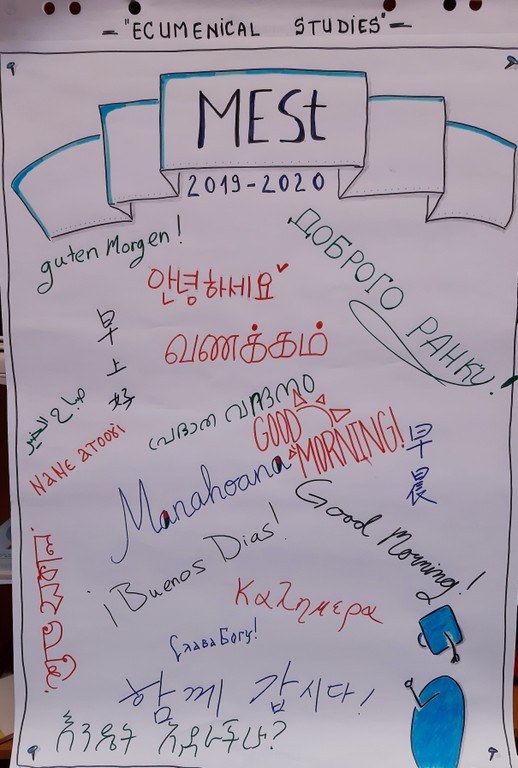 - "ECUMENICAL STUDIES" -
MESt
2019-2020
guten Morgen!
ДОБРОГО РАНКУ!
안녕하세요
வணக்கம்
早上好
صباح الخير
GOOD MORNING!
早晨
Manahoana
Good Morning!
¡Buenos Dias!
Καλημερα
Слава Богу!
함께 갑시다!